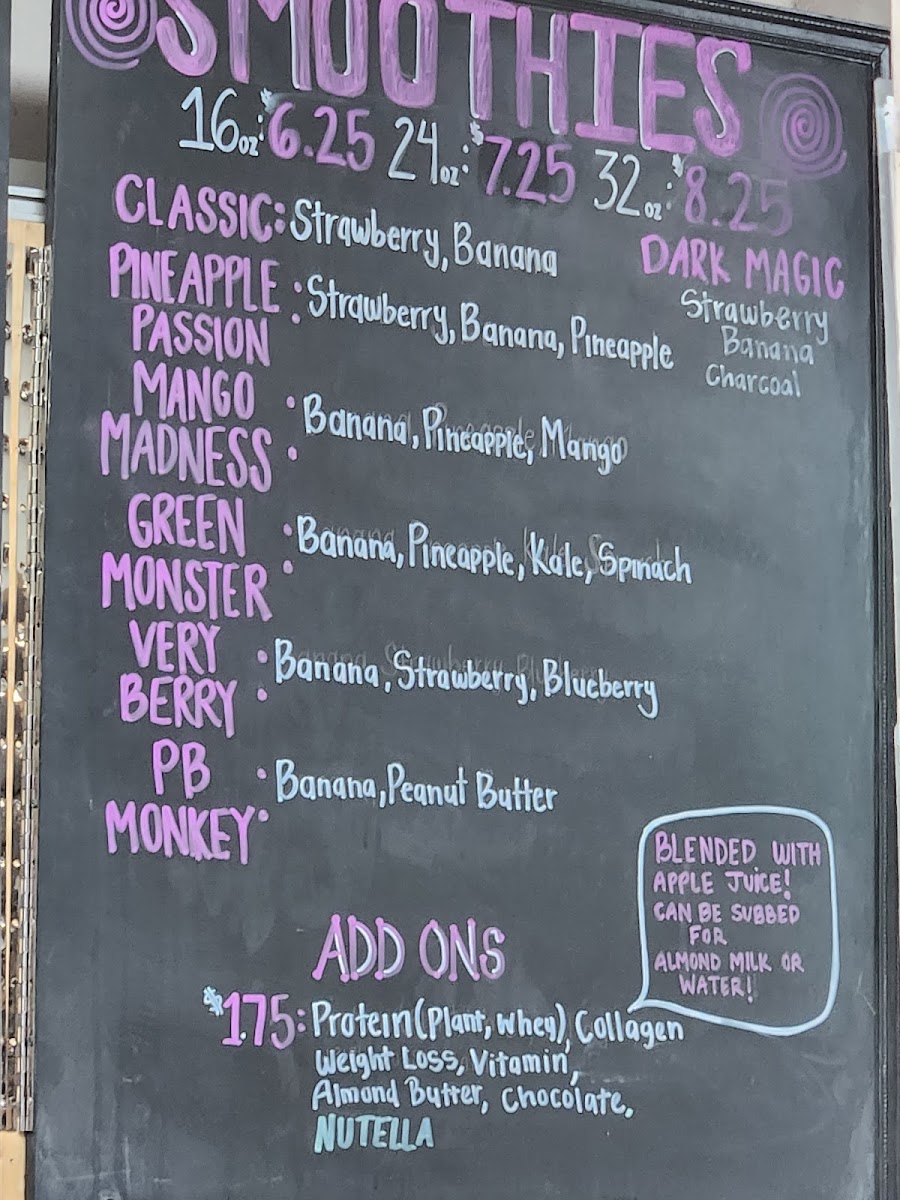 SMOOTHIES
16oz: $6.25 24oz: $7.25 32oz: $8.25
CLASSIC: Strawberry, Banana
PINEAPPLE PASSION : Strawberry, Banana, Pineapple
MANGO MADNESS : Banana, Pineapple, Mango
GREEN MONSTER : Banana, Pineapple, Kale, Spinach
VERY BERRY : Banana, Strawberry, Blueberry
PB MONKEY : Banana, Peanut Butter
DARK MAGIC
Strawberry
Banana
Charcoal
BLENDED WITH
APPLE JUICE!
CAN BE SUBBED
FOR
ALMOND MILK OR
WATER!
ADD ONS
$1.75: Protein (Plant, Whey), Collagen
Weight Loss, Vitamin,
Almond Butter, Chocolate,
NUTELLA